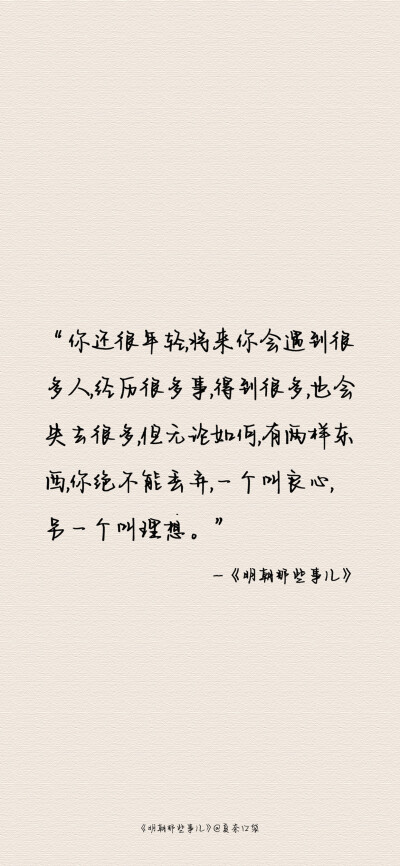 “你还很年轻,将来你会遇到很
多人,经历很多事,得到很多,也会
失去很多,但无论如何,有两样东
西,你绝不能丢弃,一个叫良心,
另一个叫理想。”
—《明朝那些事儿》
《明朝那些事儿》@夏奈口袋